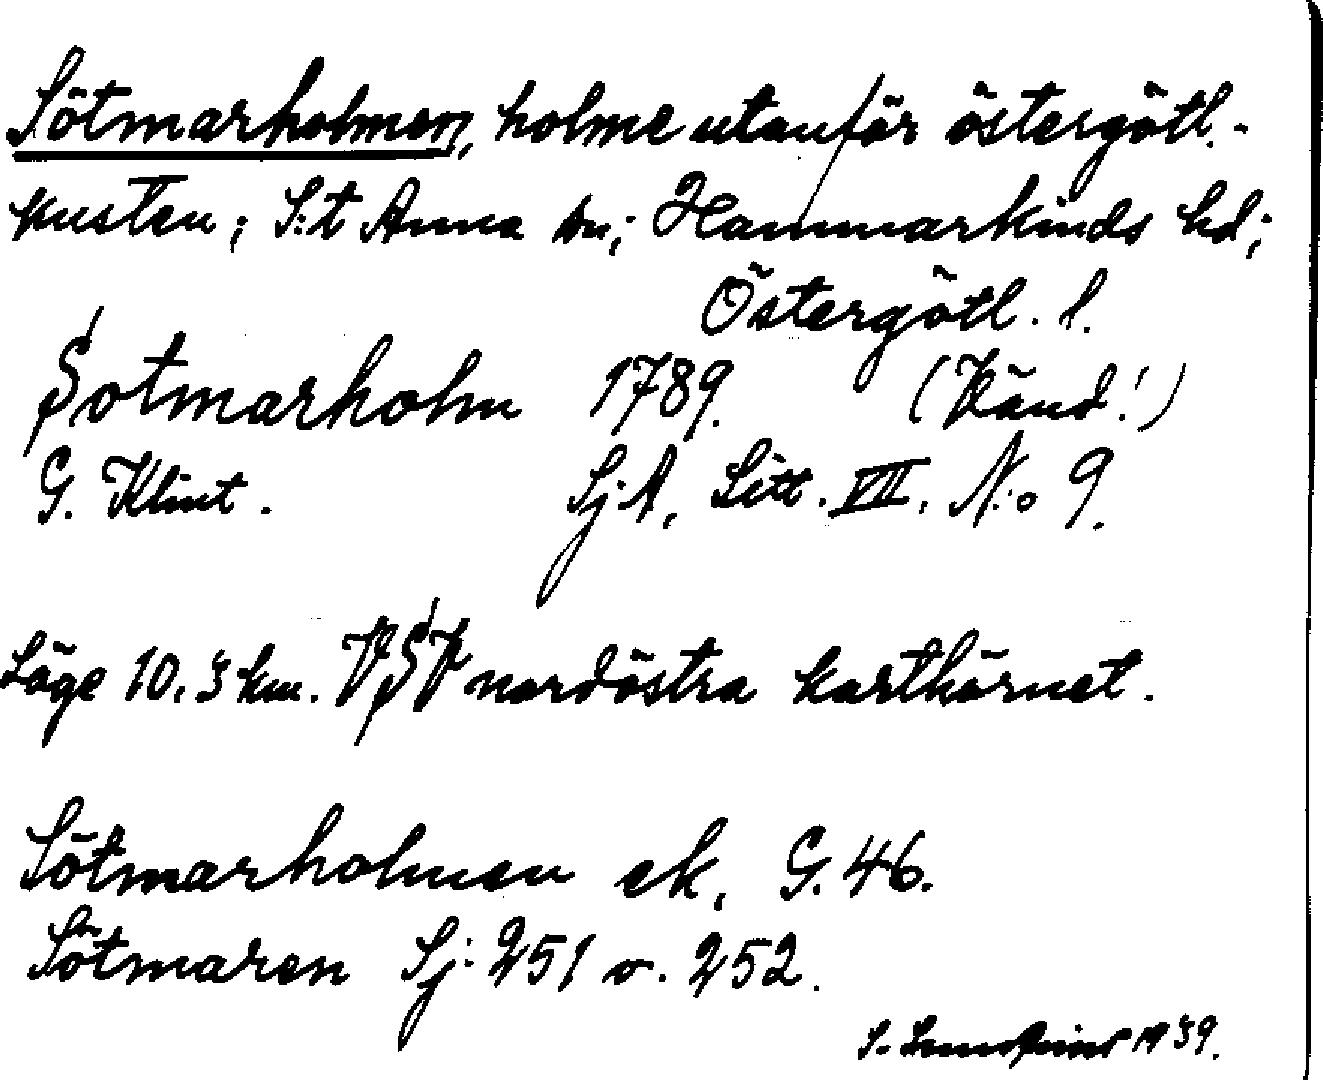 Sötmarholmen, holme utanför östergötl.-
kusten; S:t Anna sn; Hammarkinds hd;
Östergötl. l.
Sotmarholm 1789. (Känd!)
G. Klint. SjA, Litt. VII. N:o 9.
Läge 10.3 km. VSV nordöstra karthörnet.
Sötmarholmen ek. G. 46.
Sötmaren Sj: 251 o. 252.
S. 1939.